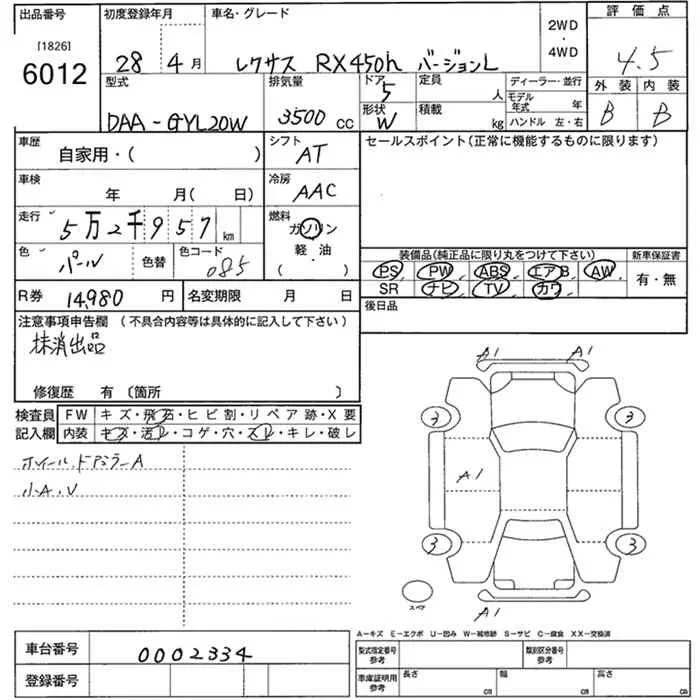 出品番号 初度登録年月 車名・グレード 2WD・4WD 評価点
[1826]
6012 28年4月 レクサス RX450h バージョンL 4.5
型式 排気量 ドア 定員 ディーラー・並行 外装 内装
DAA-GYL20W 3500cc 5 人 モデル年式 年 B B
形状 積載
W kg ハンドル 左・右
車歴 シフト セールスポイント(正常に機能するものに限ります)
自家用・( ) AT
車検 冷房
年 月( 日) AAC
走行 燃料
5万2千957km ガソリン
色 色替 色コード 軽・油
パール 085 ( )
装備品(純正品に限り丸をつけて下さい) 新車保証書
PS PW ABS エアB AW 有・無
SR ナビ TV カワ
R券 14,980円 名変期限 月 日
後日品
注意事項申告欄 (不具合内容等は具体的に記入して下さい)
抹消出品
修復歴 有〔箇所 〕
検査員 FW キズ・飛石・ヒビ割・リペア跡・X要
記入欄 内装 キズ・汚レ・コゲ・穴・スレ・キレ・破レ
ホイール、ドアミラーA
小A、U
A1 A1
3 3
A1
3 3
スペア
A1
A-キズ E-エクボ U-凹み W-補修跡 S-サビ C-腐食 XX-交換済
車台番号 0002334
型式指定番号 参考 類別区分番号 参考
登録番号
車庫証明用 参考 長さ cm 幅 cm 高さ cm